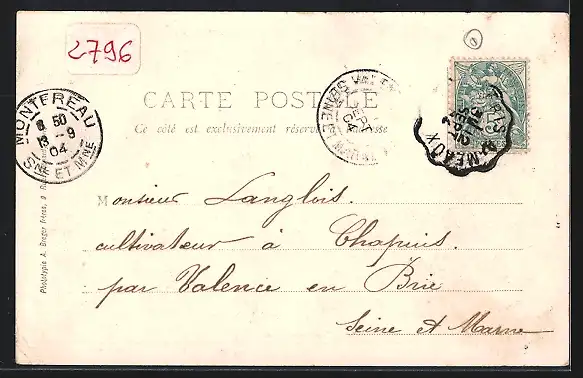 2796
CARTE POSTALE
Ce côté est exclusivement réservé à l'adresse
MONTEREAU
6 50
13 - 9
04
SNE ET MNE
PARIS
MEAUX
Monsieur Langlois.
cultivateur à Chapuis.
par Valence en Brie
Seine et Marne
Phototypie A. Breger Frères, 9